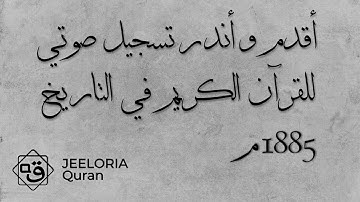 أقدم و أندر تسجيل صوتي
للقرآن الكريم في التاريخ
1885م
JEELORIA
Quran